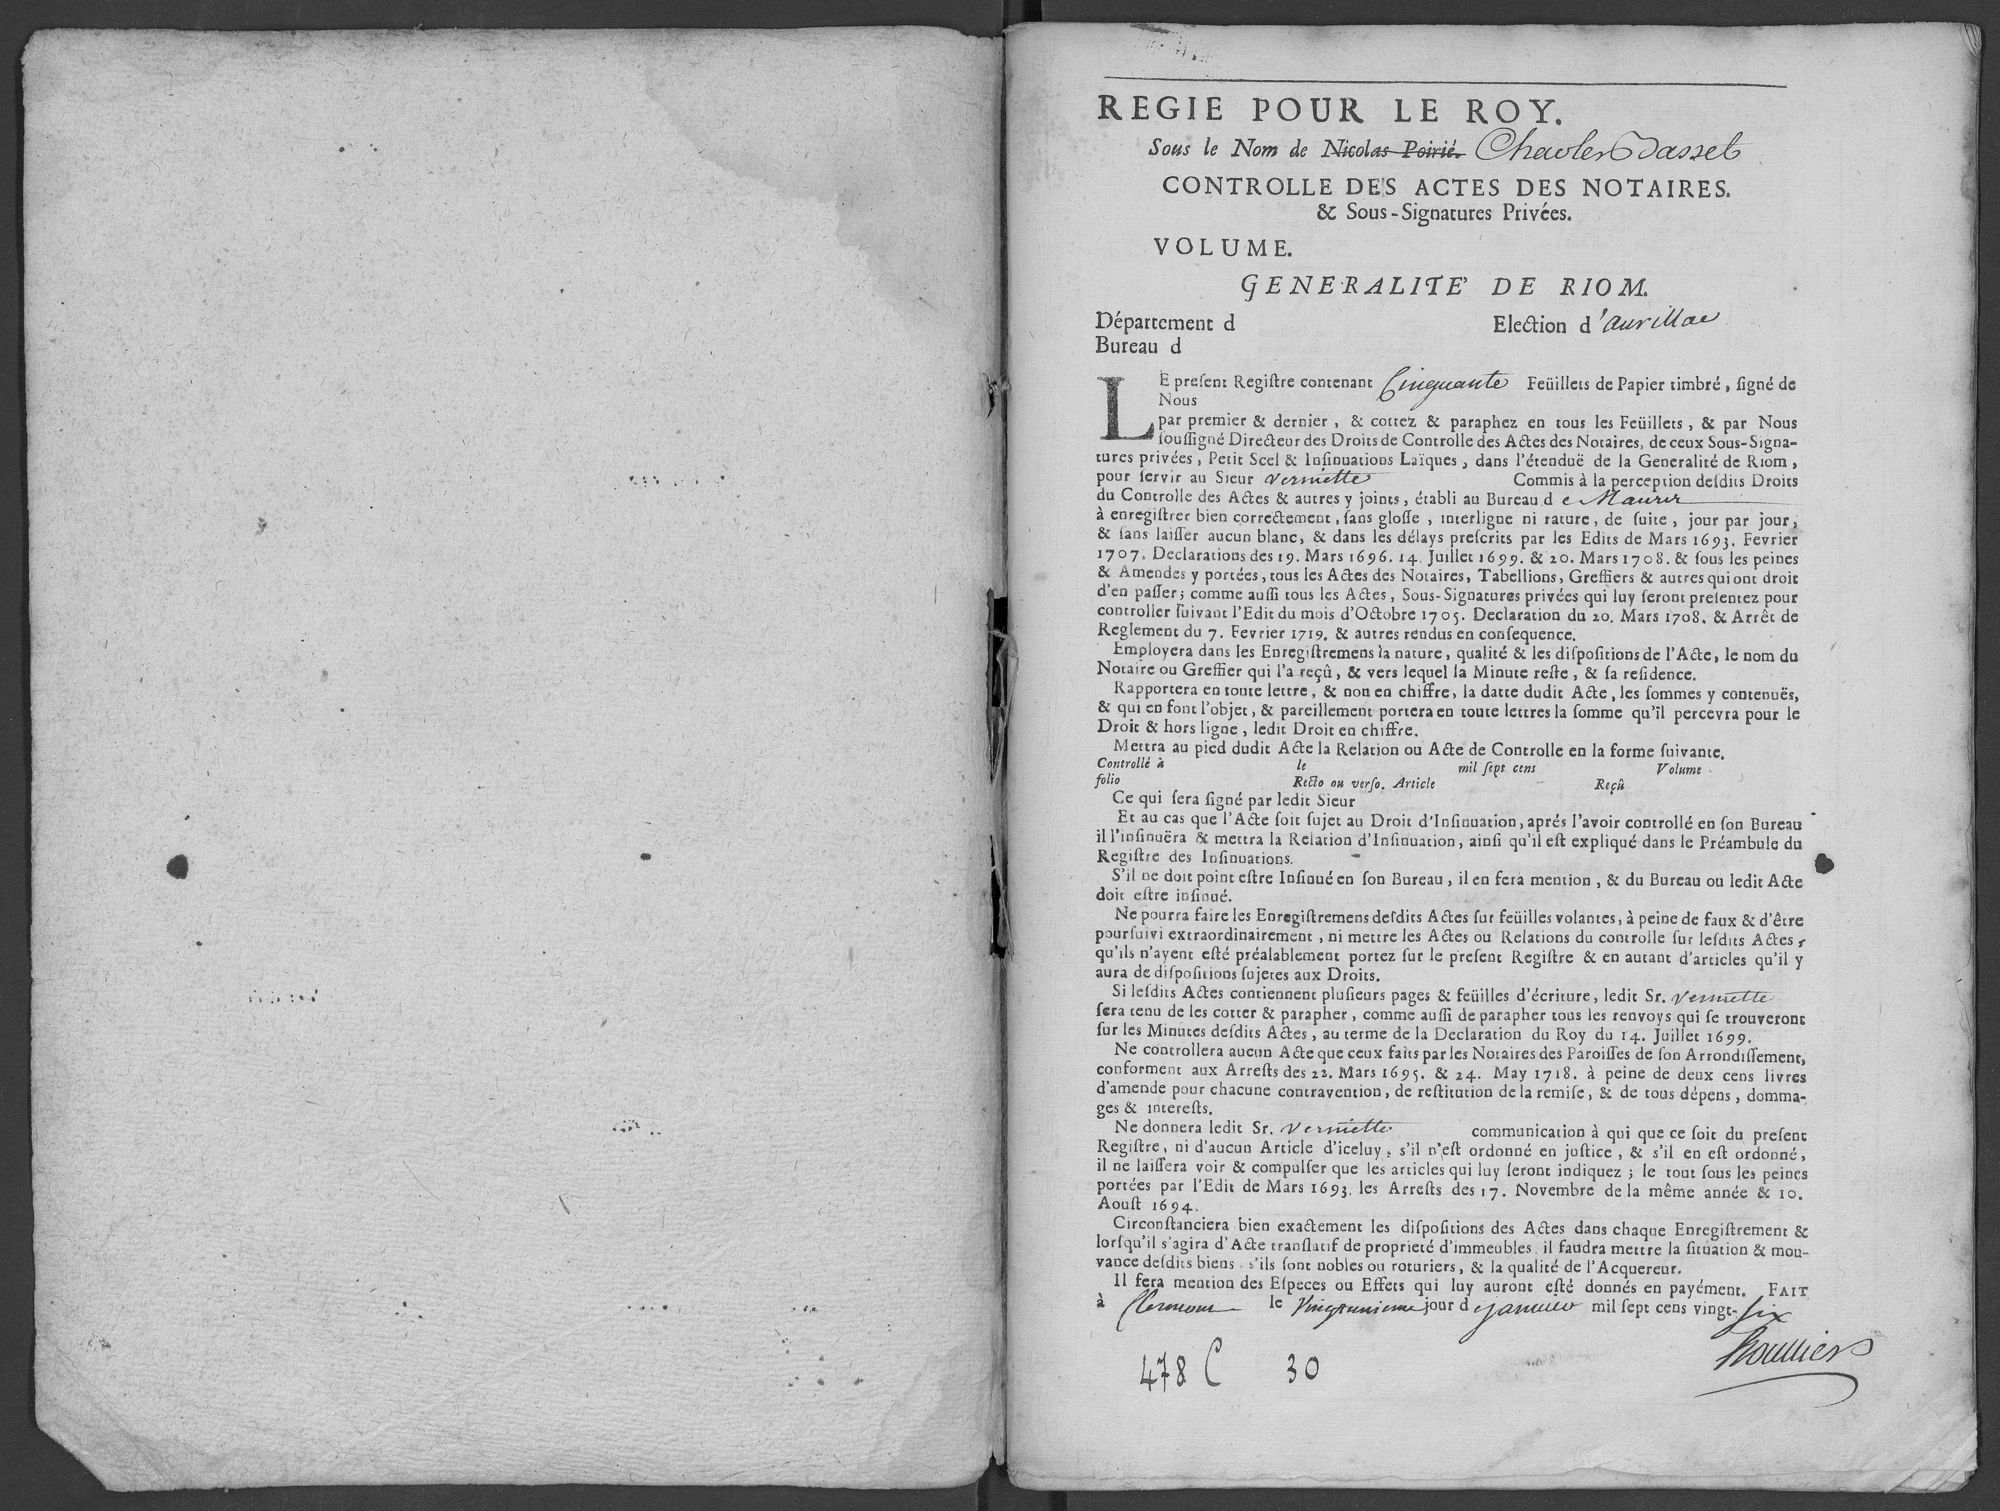 REGIE POUR LE ROY.
Sous le Nom de Nicolas Poirié. Charles Basset
CONTROLLE DES ACTES DES NOTAIRES.
& Sous-Signatures Privées.
VOLUME.
GENERALITE' DE RIOM.
Département d Election d'aurillac
Bureau d
LE preſent Regiſtre contenant Cinquante Feüillets de Papier timbré, ſigné de
Nous
par premier & dernier, & cottez & paraphez en tous les Feüillets, & par Nous
ſouſſigné Directeur des Droits de Controlle des Actes des Notaires, de ceux Sous-Signa-
tures privées, Petit Scel & Inſinuations Laïques, dans l'étenduë de la Generalité de Riom,
pour ſervir au Sieur Verniette Commis à la perception deſdits Droits
du Controlle des Actes & autres y joints, établi au Bureau d e Maurs
à enregiſtrer bien correctement, ſans gloſſe, interligne ni rature, de ſuite, jour par jour,
& ſans laiſſer aucun blanc, & dans les délays preſcrits par les Edits de Mars 1693. Fevrier
1707. Declarations des 19. Mars 1696. 14. Juillet 1699. & 20. Mars 1708. & ſous les peines
& Amendes y portées, tous les Actes des Notaires, Tabellions, Greffiers & autres qui ont droit
d'en paſſer; comme auſſi tous les Actes, Sous-Signatures privées qui luy ſeront preſentez pour
controller ſuivant l'Edit du mois d'Octobre 1705. Declaration du 20. Mars 1708. & Arrêt de
Reglement du 7. Fevrier 1719. & autres rendus en conſequence.
Employera dans les Enregiſtremens la nature, qualité & les diſpoſitions de l'Acte, le nom du
Notaire ou Greffier qui l'a reçû, & vers lequel la Minute reſte, & ſa reſidence.
Rapportera en toute lettre, & non en chiffre, la datte dudit Acte, les ſommes y contenuës,
& qui en font l'objet, & pareillement portera en toute lettres la ſomme qu'il percevra pour le
Droit & hors ligne, ledit Droit en chiffre.
Mettra au pied dudit Acte la Relation ou Acte de Controlle en la forme ſuivante.
Controllé à le mil ſept cens Volume
folio Recto ou verſo. Article Reçû
Ce qui ſera ſigné par ledit Sieur
Et au cas que l'Acte ſoit ſujet au Droit d'Inſinuation, aprés l'avoir controllé en ſon Bureau
il l'inſinuëra & mettra la Relation d'Inſinuation, ainſi qu'il eſt expliqué dans le Préambule du
Regiſtre des Inſinuations.
S'il ne doit point eſtre Inſinué en ſon Bureau, il en fera mention, & du Bureau ou ledit Acte
doit eſtre inſinué.
Ne pourra faire les Enregiſtremens deſdits Actes ſur feüilles volantes, à peine de faux & d'être
pourſuivi extraordinairement, ni mettre les Actes ou Relations du controlle ſur leſdits Actes,
qu'ils n'ayent eſté préalablement portez ſur le preſent Regiſtre & en autant d'articles qu'il y
aura de diſpoſitions ſujetes aux Droits.
Si leſdits Actes contiennent pluſieurs pages & feüilles d'écriture, ledit Sr. Verniette
ſera tenu de les cotter & parapher, comme auſſi de parapher tous les renvoys qui ſe trouveront
ſur les Minutes deſdits Actes, au terme de la Declaration du Roy du 14. Juillet 1699.
Ne controllera aucun Acte que ceux faits par les Notaires des Paroiſſes de ſon Arrondiſſement,
conforment aux Arreſts des 22. Mars 1695. & 24. May 1718. à peine de deux cens livres
d'amende pour chacune contravention, de reſtitution de la remiſe, & de tous dépens, domma-
ges & intereſts.
Ne donnera ledit Sr. Verniette communication à qui que ce ſoit du preſent
Regiſtre, ni d'aucun Article d'iceluy, s'il n'eſt ordonné en juſtice, & s'il en eſt ordonné,
il ne laiſſera voir & compulſer que les articles qui luy ſeront indiquez; le tout ſous les peines
portées par l'Edit de Mars 1693. les Arreſts des 17. Novembre de la même année & 10.
Aouſt 1694.
Circonſtanciera bien exactement les diſpoſitions des Actes dans chaque Enregiſtrement &
lorſqu'il s'agira d'Acte tranſlatif de proprieté d'immeubles, il faudra mettre la ſituation & mou-
vance deſdits biens, s'ils ſont nobles ou roturiers, & la qualité de l'Acquereur.
Il fera mention des Eſpeces ou Effets qui luy auront eſté donnés en payément. FAIT
à Clermont le Vingtunieme jour de janvier mil ſept cens vingt-ſix
478 C 30